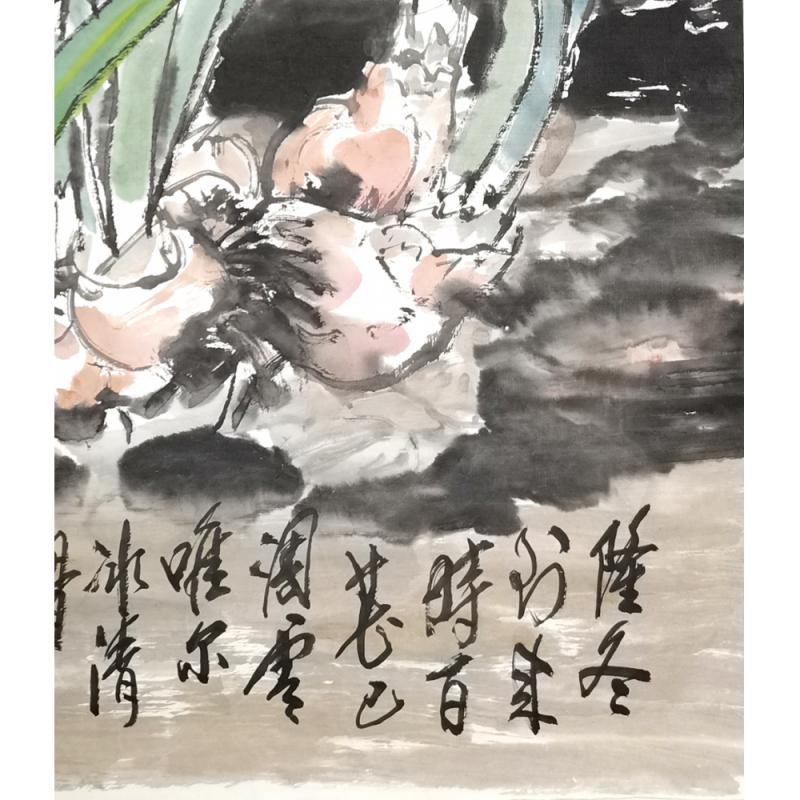 隆冬
到来
時百
花已
凋零
唯尔
冰清